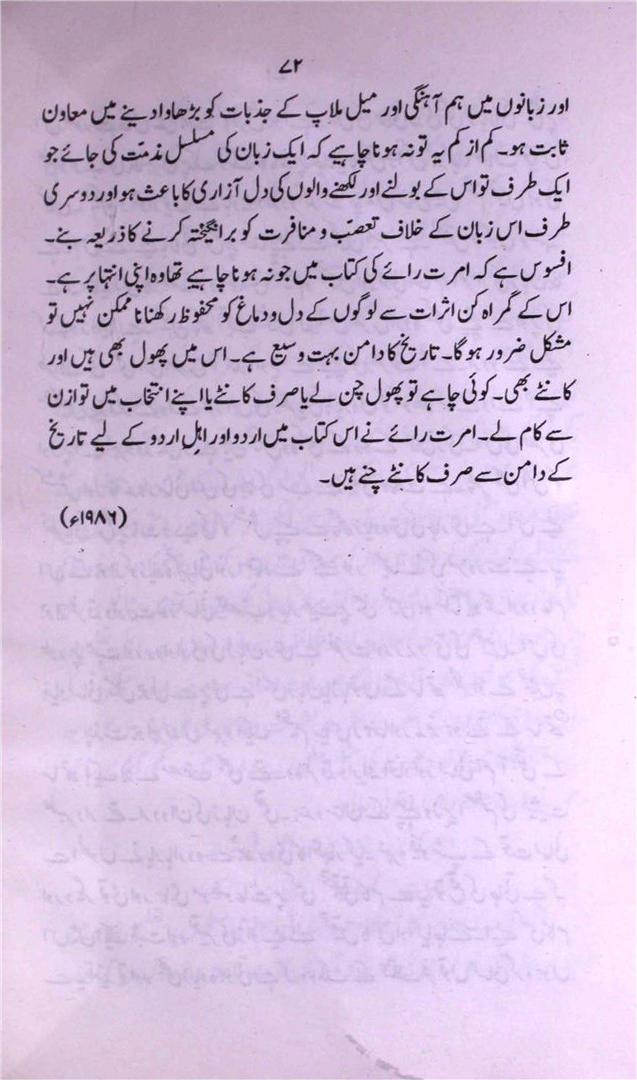 ۷۲
اور زبانوں میں ہم آہنگی اور میل ملاپ کے جذبات کو بڑھاوا دینے میں معاون
ثابت ہو۔ کم از کم یہ تو نہ ہونا چاہیے کہ ایک زبان کی مسلسل مذمّت کی جائے جو
ایک طرف تو اس کے بولنے اور لکھنے والوں کی دل آزاری کا باعث ہو اور دوسری
طرف اس زبان کے خلاف تعصّب و منافرت کو برانگیختہ کرنے کا ذریعہ بنے۔
افسوس ہے کہ امرت رائے کی کتاب میں جو نہ ہونا چاہیے تھا وہ اپنی انتہا پر ہے۔
اس کے گمراہ کن اثرات سے لوگوں کے دل و دماغ کو محفوظ رکھنا ناممکن نہیں تو
مشکل ضرور ہوگا۔ تاریخ کا دامن بہت وسیع ہے۔ اس میں پھول بھی ہیں اور
کانٹے بھی۔ کوئی چاہے تو پھول چن لے یا صرف کانٹے یا اپنے انتخاب میں توازن
سے کام لے۔ امرت رائے نے اس کتاب میں اردو اور اہلِ اردو کے لیے تاریخ
کے دامن سے صرف کانٹے چنے ہیں۔
(۱۹۸۶ء)